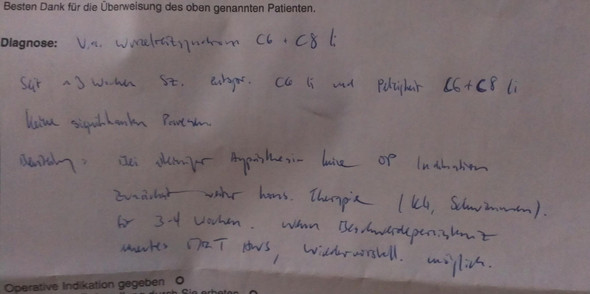 Besten Dank für die Überweisung des oben genannten Patienten.
Diagnose: V.a. Wurzelreizsyndrom C6 + C8 li
Seit ~3 Wochen Sz. entspr. C6 li und C6 + C8 li
keine signifikanten Paresen
Bei Hypästhesie keine OP Indikation
Zunächst weiter kons. Therapie (KG, Schwimmen).
für 3-4 Wochen. wenn Beschwerdepersistenz
erneutes MRT HWS, Wiedervorstell. möglich.
Operative Indikation gegeben O
durch Sie erbeten O